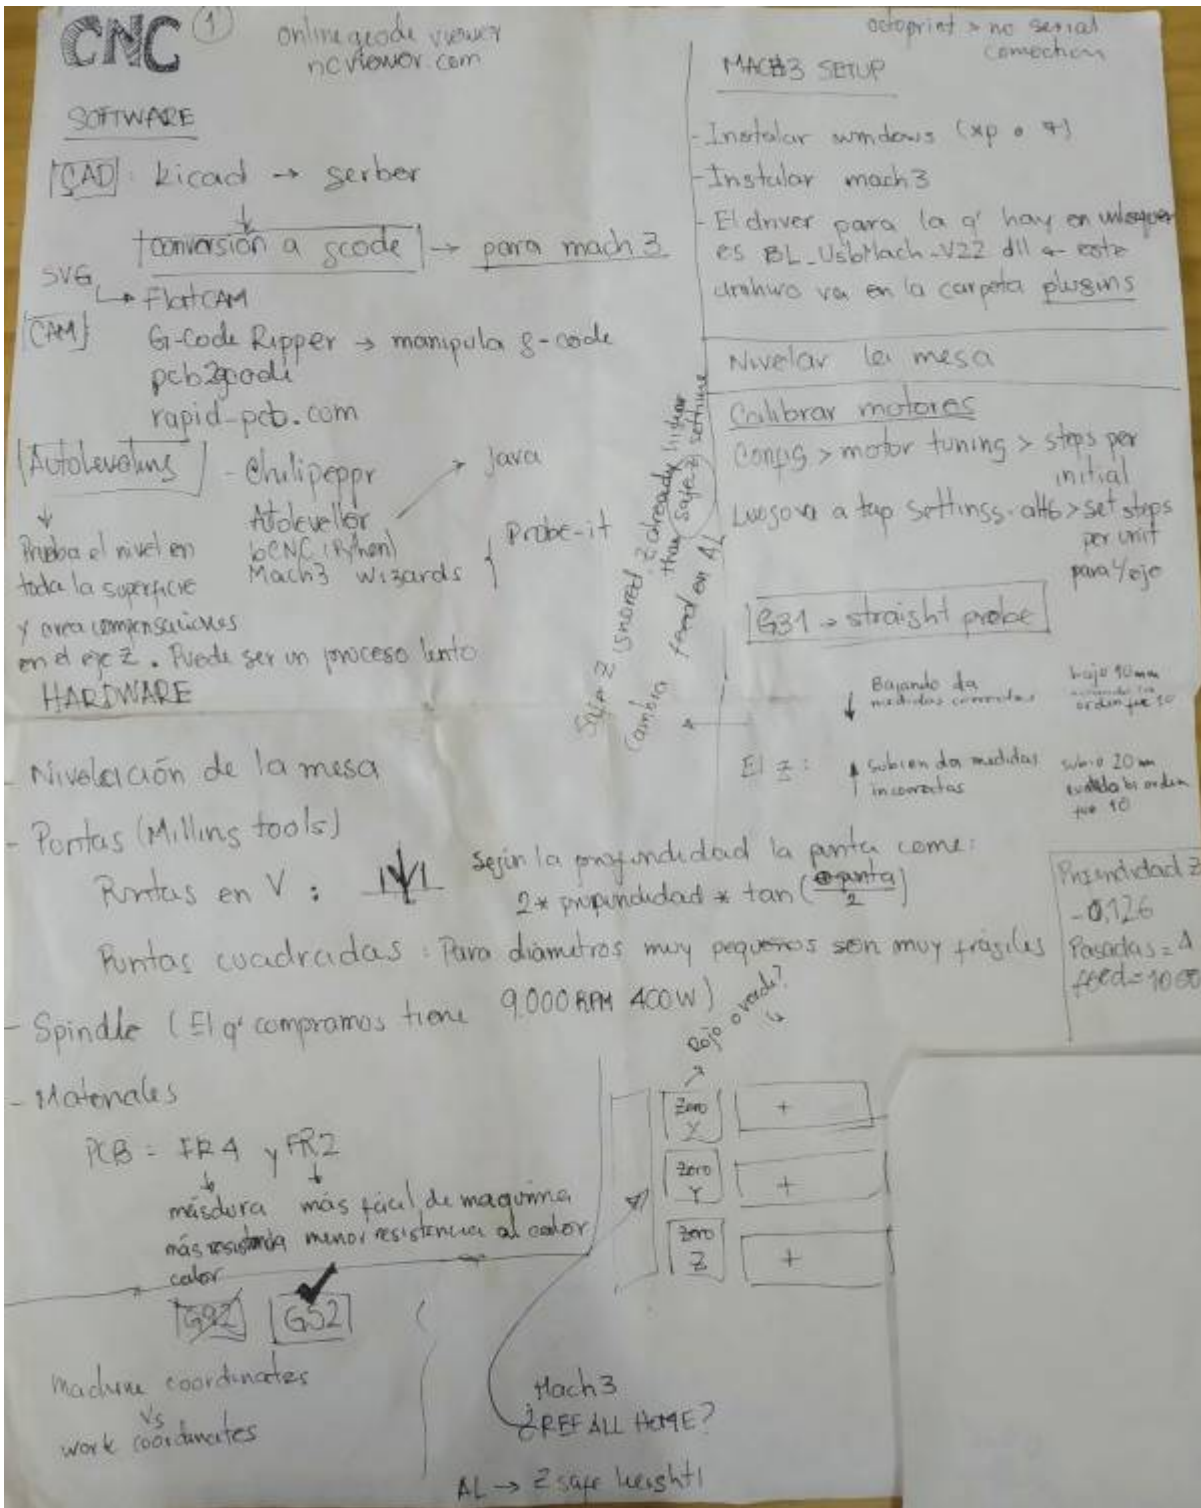 CNC 1
online gcode viewer
ncviewer.com
SOFTWARE
CAD: kicad → gerber
conversión a gcode → para mach 3
SVG
→ FlatCAM
CAM
G-Code Ripper → manipula g-code
pcb2gcode
rapid-pcb.com
Autoleveling - Chilipeppr
Autoleveller → Java
bCNC (Python)
Mach3 wizards } Probe-it
Prueba el nivel en
toda la superficie
y crea compensaciones
en el eje Z. Puede ser un proceso lento
HARDWARE
- Nivelación de la mesa
- Puntas (Milling tools)
Puntas en V:
Según la profundidad la punta come:
2* profundidad * tan (punta/2)
Puntas cuadradas: Para diámetros muy pequeños son muy frágiles
- Spindle (El q' compramos tiene 9.000 RPM 400W)
- Materiales
PCB = FR4 y FR2
más dura más fácil de maquina
más resistencia menor resistencia al calor
calor
G92 G52
machine coordinates
vs
work coordinates
octoprint > no serial
conection
MACH3 SETUP
- Instalar windows (xp o 7)
- Instalar mach3
- El driver para la q' hay en
es BL_UsbMach_V22 dll ← este
archivo va en la carpeta plugins
Nivelar la mesa
Calibrar motores
Config > motor tuning > steps per
initial
Luego va a tap settings. alt6 > set steps
per unit
para c/eje
G31 → straight probe
Safe Z ignored Z already higher
than safe Z setting
Cambia feed en AL
El Z:
↓ Bajando da
medidas correctas
bajo 10mm
orden fue 10
↑ subiendo da medidas
incorrectas
subio 20mm
cuando la orden
fue 10
Profundidad Z
-0,126
Pasadas = 1
feed = 1000
Rojo o verde?
Zero
X
+
Zero
Y
+
Zero
Z
+
Mach3
¿REF ALL HOME?
AL → Z safe height!